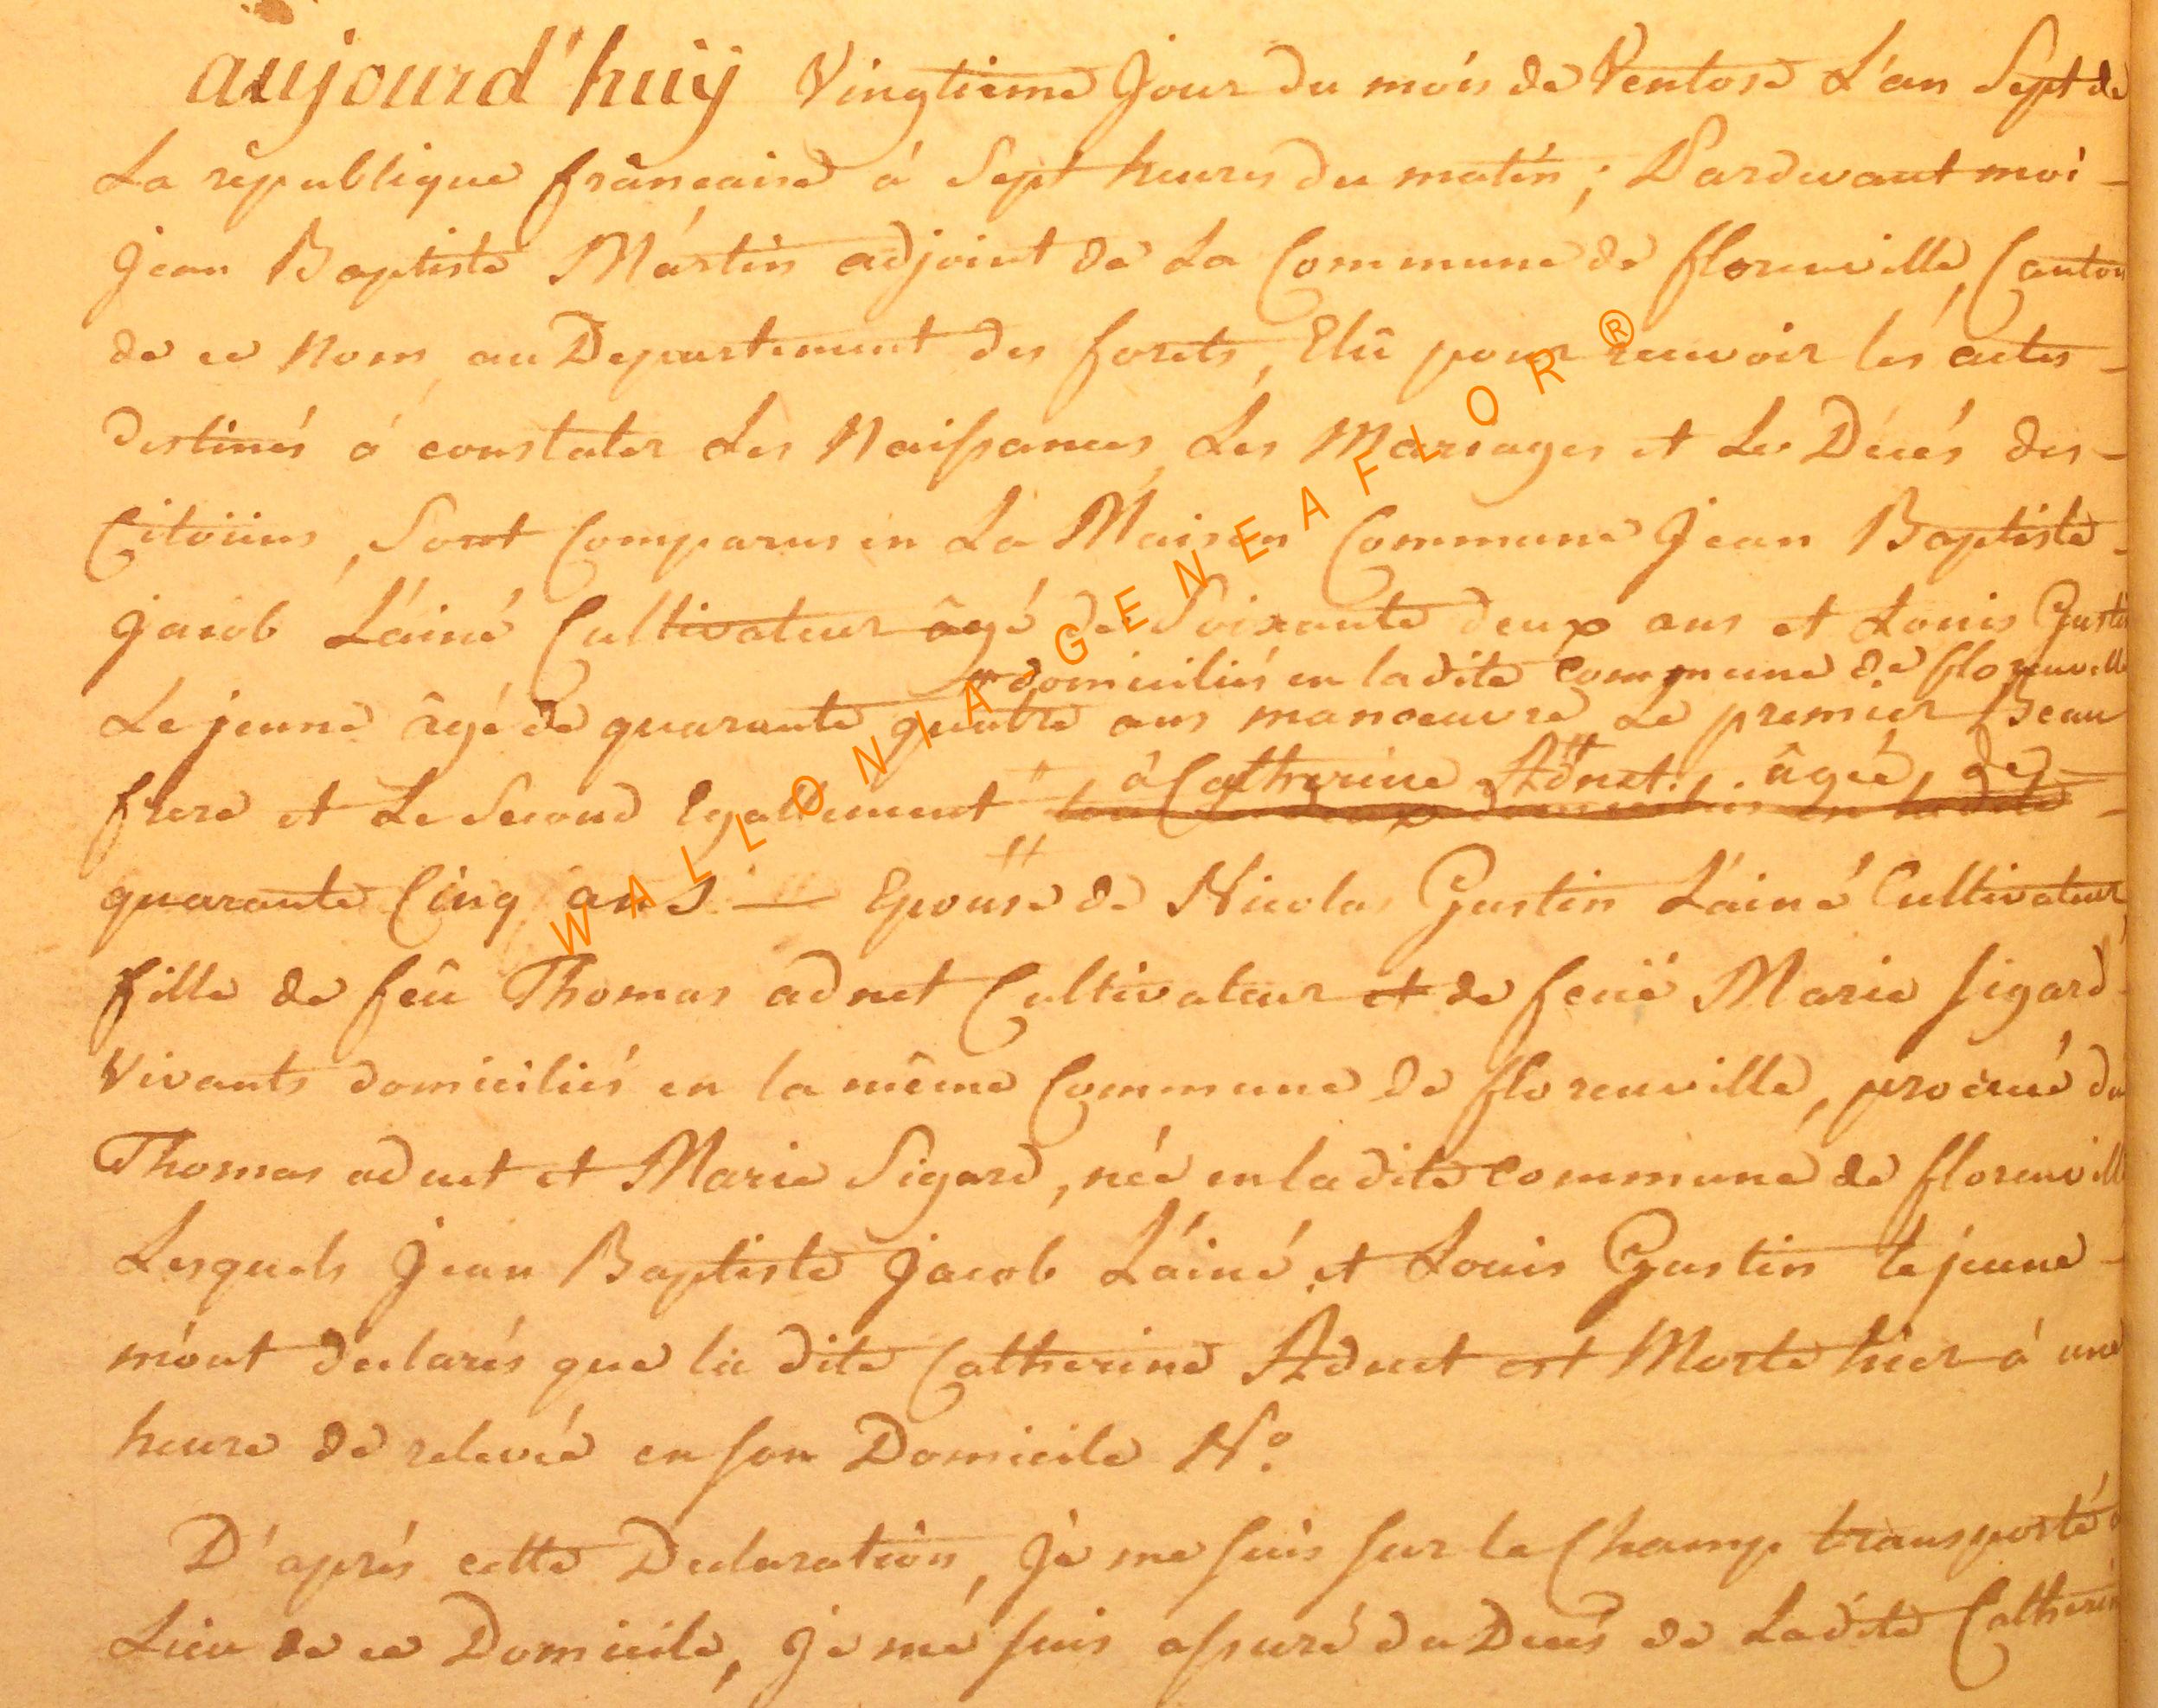 aujourd'huÿ Vingtieme Jour du mois de Ventose L'an Sept de
La republique française à Sept heures du matin ; Pardevant moi -
Jean Baptiste Martin adjoint de La Commune de florenville, Canton
de ce Nom, au Departement des forets, Elû pour recevoir les actes -
destinés à constater Les Naissances, Les Mariages et Les Décés des -
Citoïens, Sont Comparus en La Maison Commune Jean Baptiste -
Jacob L'ainé Cultivateur âgé de Soixante deux ans et Louis Gustin
domiciliés en ladite commune de florenville
Le jeune âgé de quarante quatre ans manoeuvre Le premier Beau
à Catherine Adnet âgée de
frere et Le Second Egallement " tous les deux domiciliés en ladite -
quarante Cinq ans — Epouse de Nicolas Gustin L'ainé Cultivateur,
fille de feû Thomas adnet Cultivateur et de feuë Marie Sigard
Vivants domiciliés en la même Commune de florenville, procréé du
Thomas adnet et Marie Sigard, née en ladite commune de florenville
Lesquels Jean Baptiste Jacob L'ainé et Louis Gustin le jeune -
m'ont declarés que la dite Catherine Adnet est Morte hier à une
heure de relevée en son Domicile N°.
D'aprés cette Declaration, Je me suis sur le Champ transporté
Lieu de ce Domicile, Je me suis assuré du Decés de Ladite Catherine
WALLONIA-GENEAFLOR®